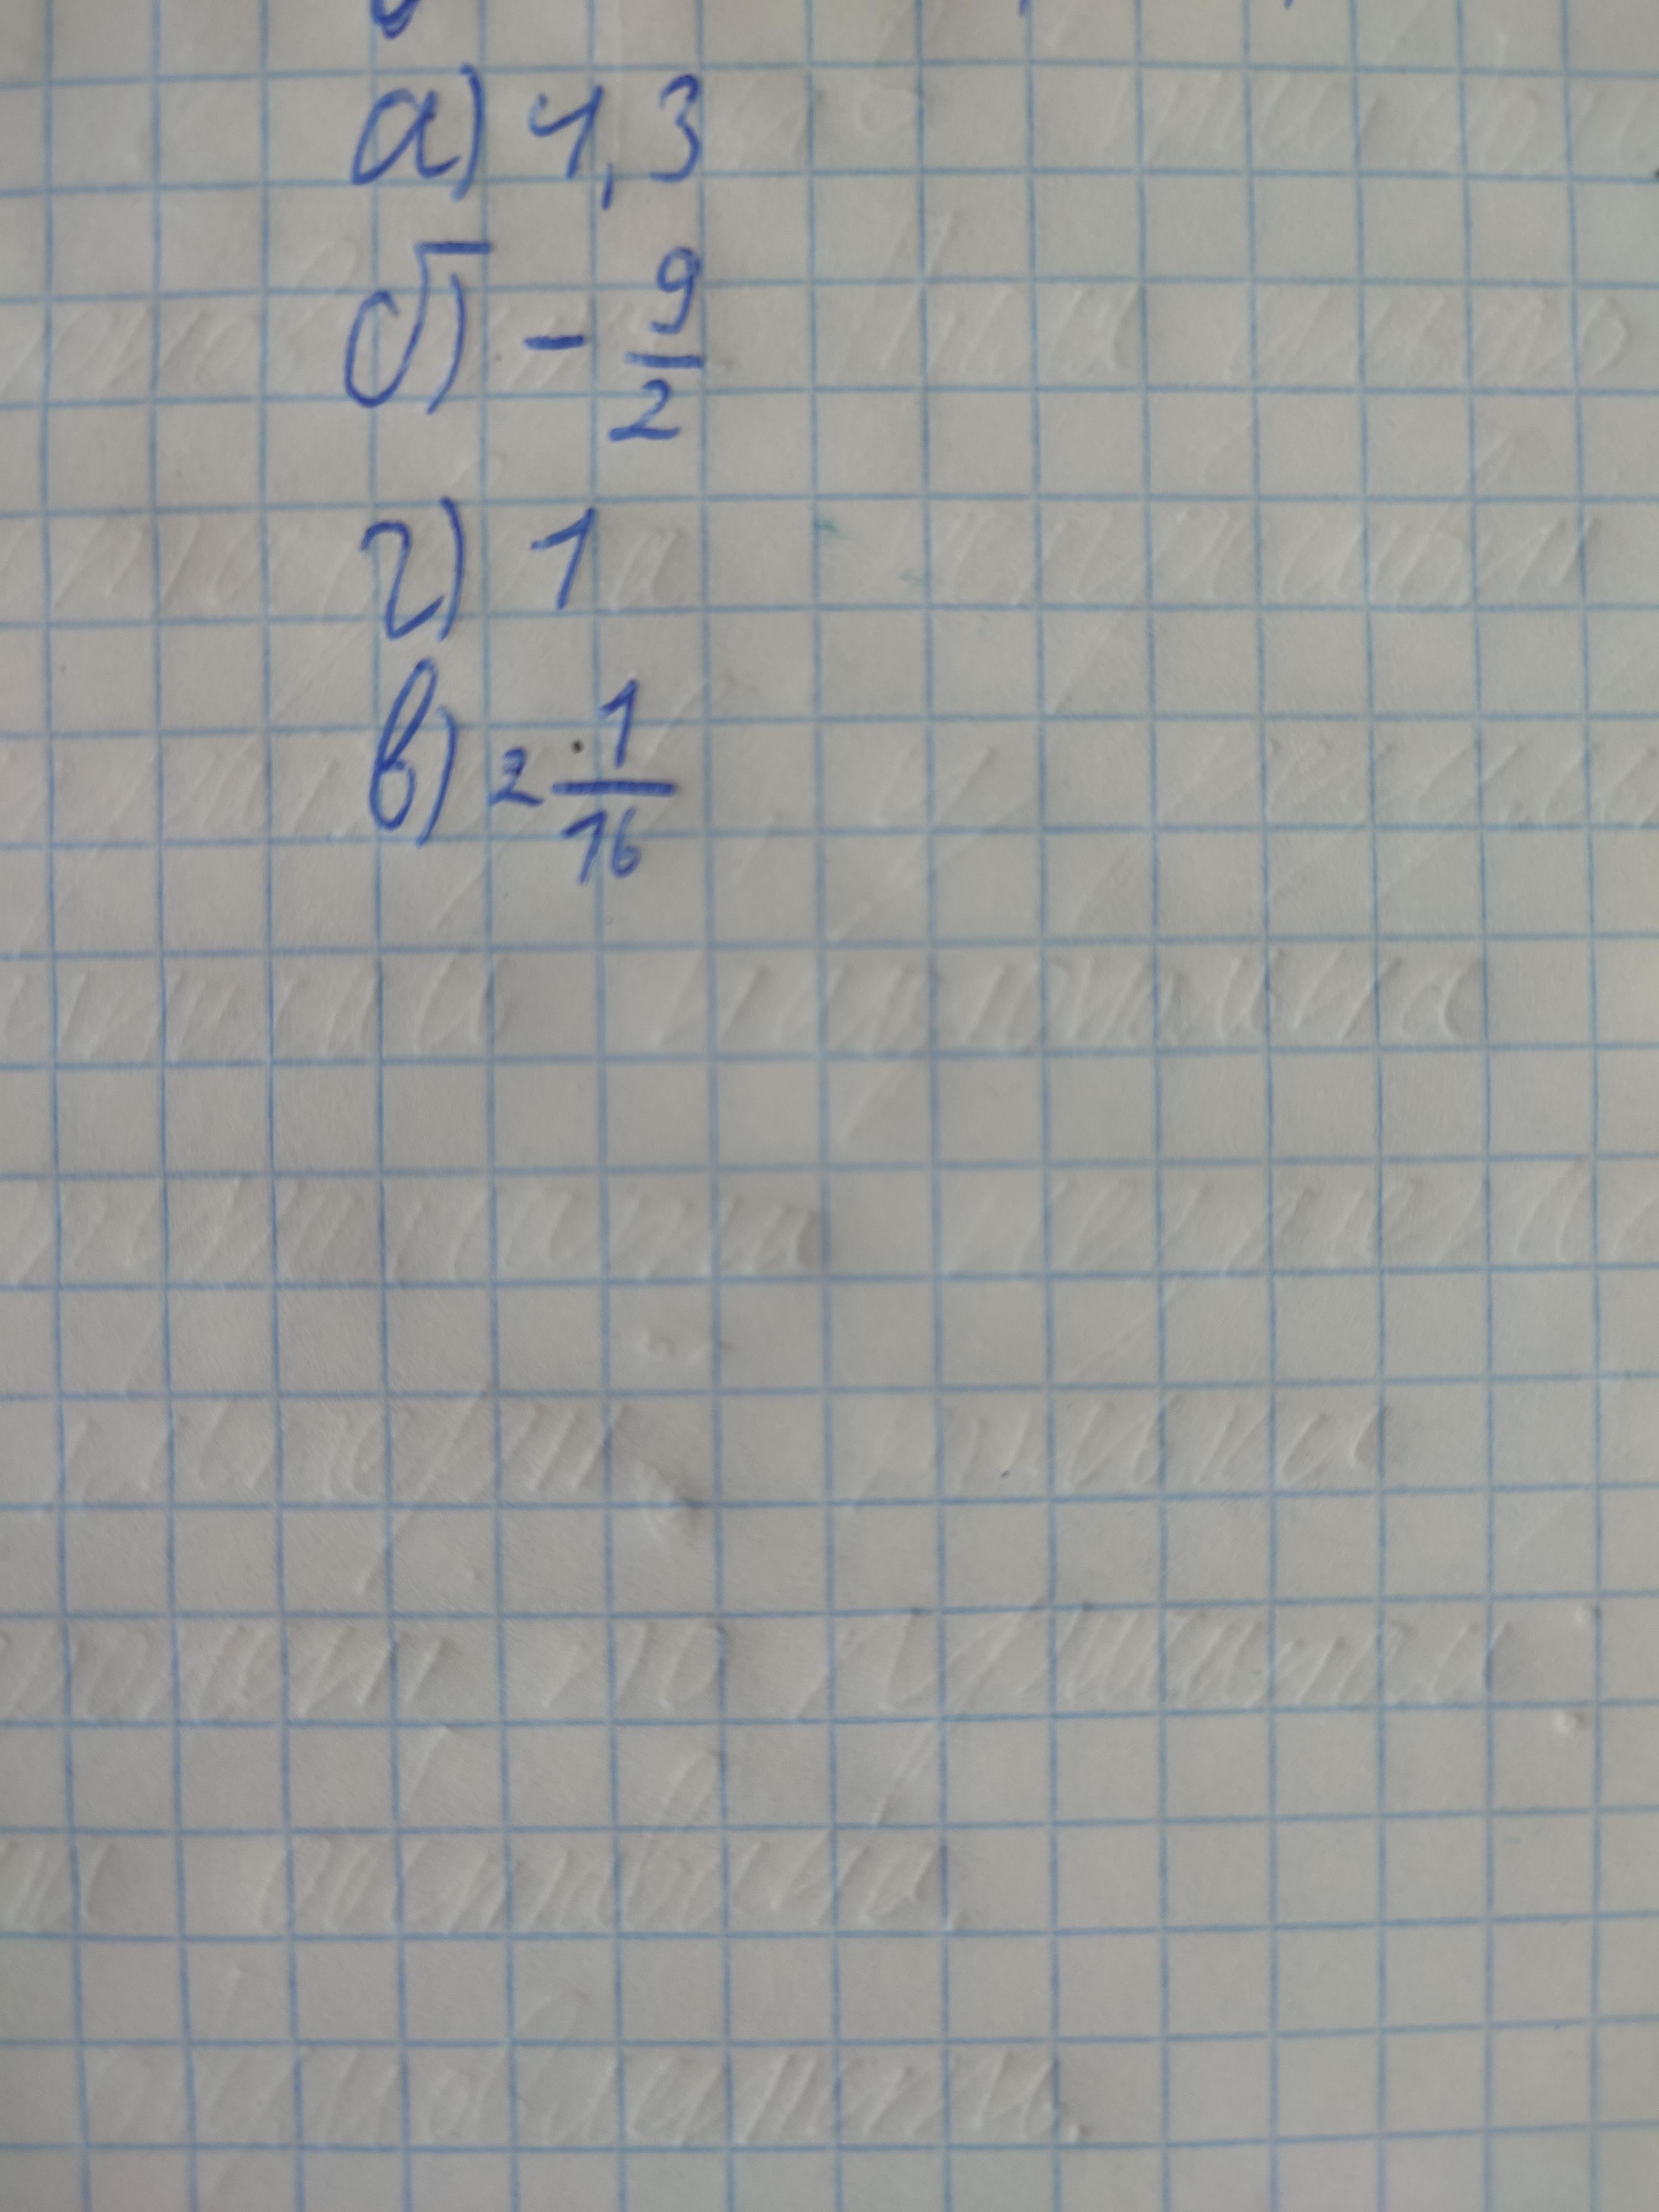 а) 1,3
б) - 9/2
г) 1
в) 2 1/16